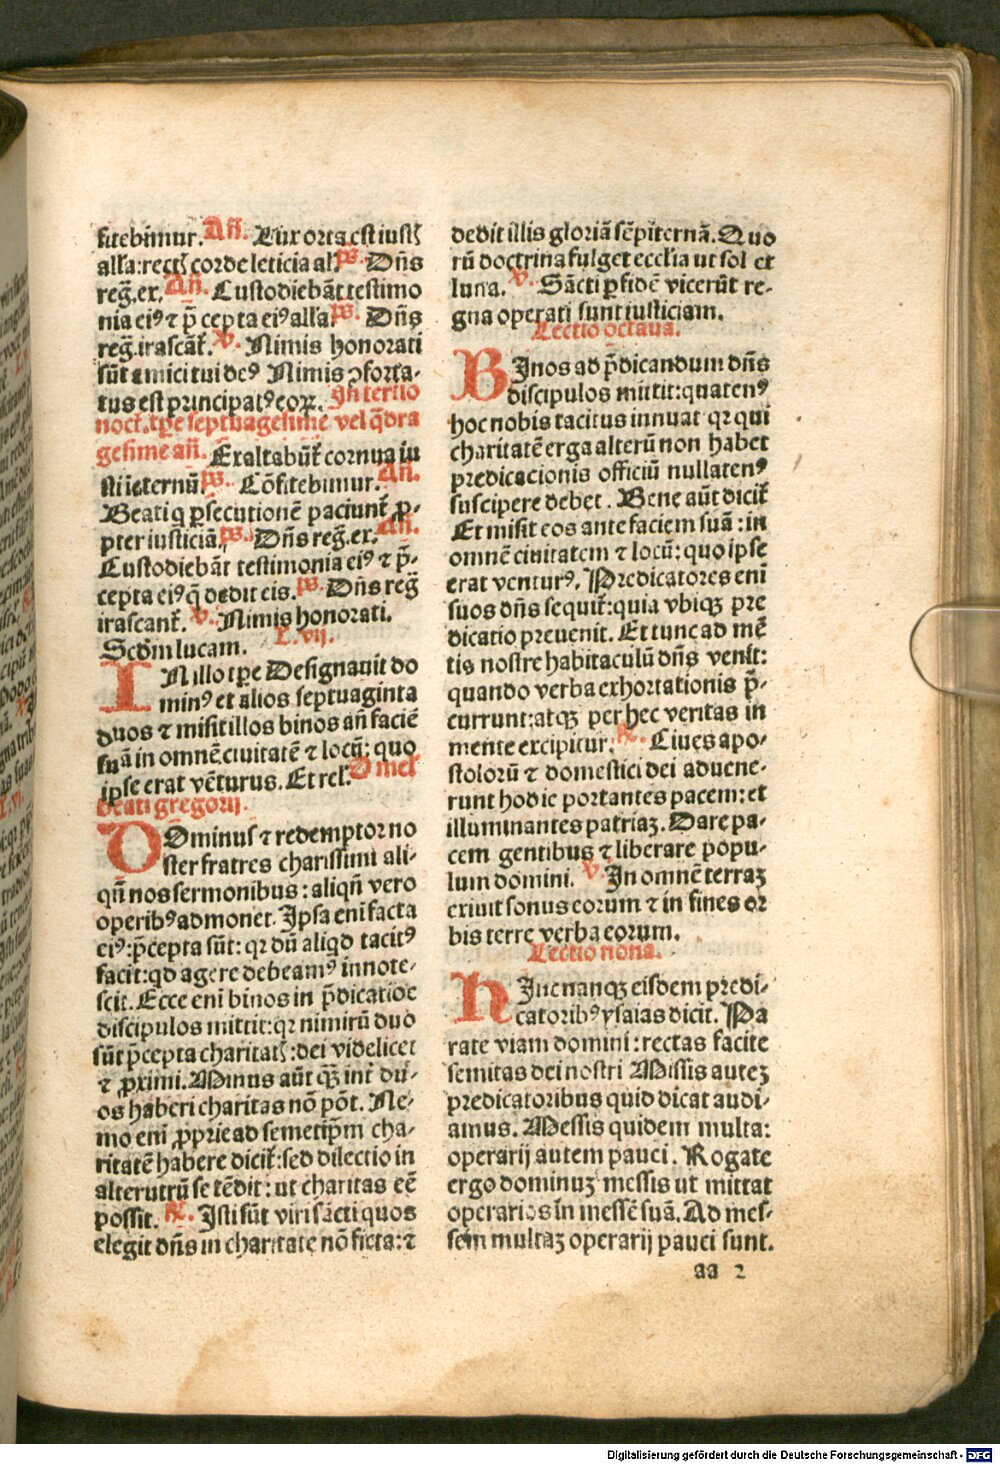 fitebimur. Añ. Lux orta est iustꝭ
alľa: rectꝭ corde leticia alľ. ps. Dñs
reg̃. ex. Añ. Custodiebãt testimo
nia eiꝰ ⁊ p̃cepta eiꝰ alľa. ps. Dñs
reg̃. irascãt᷑. v. Nimis honorati
sũt amici tui deꝰ Nimis ↄforta-
tus est principatꝰ eoꝝ. In tertio
noct. tp̃e septuagesime vel q̃dra
gesime añ. Exaltabũt᷑ cornua iu
sti ieternũ ps. Cõfitebimur. Añ.
Beati q ꝑsecutionẽ paciunt᷑ ꝓ-
pter iusticiã. ps. Dñs reg̃. ex. Añ.
Custodiebãt testimonia eiꝰ ⁊ p̃-
cepta eiꝰ q̃ dedit eis. ps. Dñs reg̃
irascant᷑. v. Nimis honorati.
Scd̃m lucam. L. vij.
IN illo tp̃e Designauit do
minꝰ et alios septuaginta
duos ⁊ misit illos binos añ faciẽ
suã in omnẽ ciuitatẽ ⁊ locũ: quo
ipse erat vẽturus. Et rel̃. Omel̃
beati gregorij.
DOminus ⁊ redemptor no
ster fratres charissimi ali-
qñ nos sermonibus: aliqñ vero
operibꝰ admonet. Ipsa eni facta
eiꝰ: p̃cepta sũt: qꝛ dũ aliqd tacitꝰ
facit: qd agere debeamꝰ innote-
scit. Ecce eni binos in p̃dicatioe
discipulos mittit: qꝛ nimirũ duo
sũt p̃cepta charitatꝭ: dei videlicet
⁊ ꝓximi. Minus aũt qꝫ̃ int᷑ du-
os haberi charitas nõ põt. Ne-
mo eni ꝓprie ad semetip̃m cha-
ritatẽ habere dicit᷑: sed dilectio in
alterutrũ se tẽdit: ut charitas eẽ
possit. ℟. Isti sũt viri sãcti quos
elegit dñs in charitate nõ ficta: ⁊
dedit illis gloriã sẽpiternã. Quo
rũ doctrina fulget ecclia ut sol et
luna. v. Sãcti ꝑ fidẽ vicerũt re-
gna operati sunt iusticiam.
Lectio octaua.
BInos ad p̃dicandum dñs
discipulos mittit: quatenꝰ
hoc nobis tacitus innuat qꝛ qui
charitatẽ erga alterũ non habet
predicacionis officiũ nullatenꝰ
suscipere debet. Bene aũt dicit᷑
Et misit eos ante faciem suã: in
omnẽ ciuitatem ⁊ locũ: quo ipse
erat venturꝰ. Predicatores eni
suos dñs sequit᷑: quia vbiqꝫ pre
dicatio preuenit. Et tunc ad mẽ
tis nostre habitaculũ dñs venit:
quando verba exhortationis p̃-
currunt: atqꝫ per hec veritas in
mente excipitur. ℟. Ciues apo-
stolorũ ⁊ domestici dei aduene-
runt hodie portantes pacem: et
illuminantes patriaꝫ. Dare pa-
cem gentibus ⁊ liberare popu-
lum domini. v. In omnẽ terraꝫ
exiuit sonus eorum ⁊ in fines or
bis terre verba eorum.
Lectio nona.
HInc nanqꝫ eisdem predi-
catoribꝰ ysaias dicit. Pa
rate viam domini: rectas facite
semitas dei nostri Missis auteꝫ
predicatoribus quid dicat audi-
amus. Messis quidem multa:
operarij autem pauci. Rogate
ergo dominuꝫ messis ut mittat
operarios in messẽ suã. Ad mes-
sem multaꝫ operarij pauci sunt.
aa 2
Digitalisierung gefördert durch die Deutsche Forschungsgemeinschaft - DFG